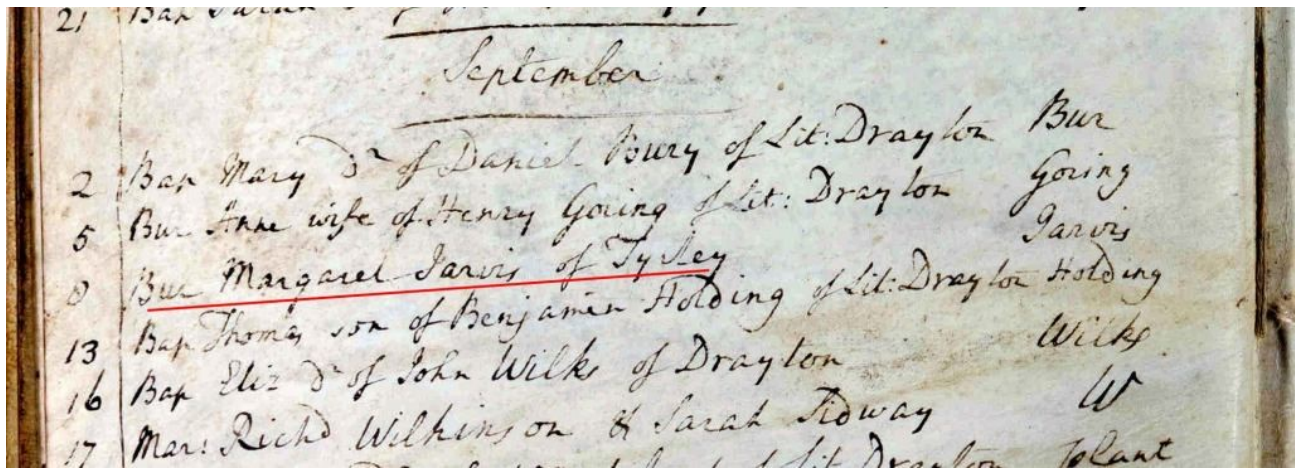 21 Bap Sarah
September
2 Bap Mary Dr of Daniel Bury of Lit: Drayton Bur
5 Bur Anne wife of Henry Goring of Lit: Drayton Goring
8 Bur Margaret Jarvis of Tyrley Jarvis
13 Bap Thomas son of Benjamin Holding of Lit: Drayton Holding
16 Bap Eliz Dr of John Wilks of Drayton Wilks
17 Mar: Richd Wilkinson & Sarah Sidway W
of Lit Drayton Plant